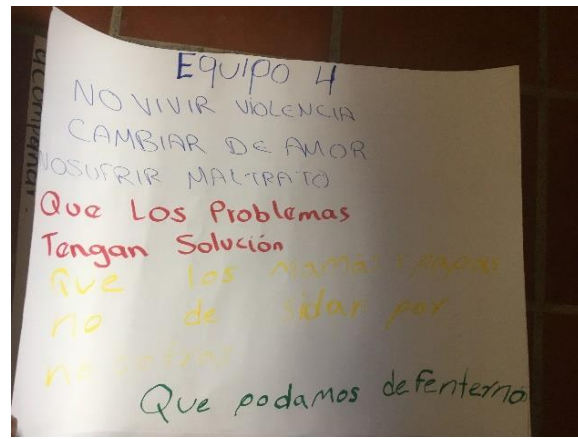 EQUIPO 4
NO VIVIR VIOLENCIA
CAMBIAR DE AMOR
NO SUFRIR MALTRATO
Que Los Problemas
Tengan Solución
Que los mamá y papá
no de sidar por
Que podamos defenterno
acompañar